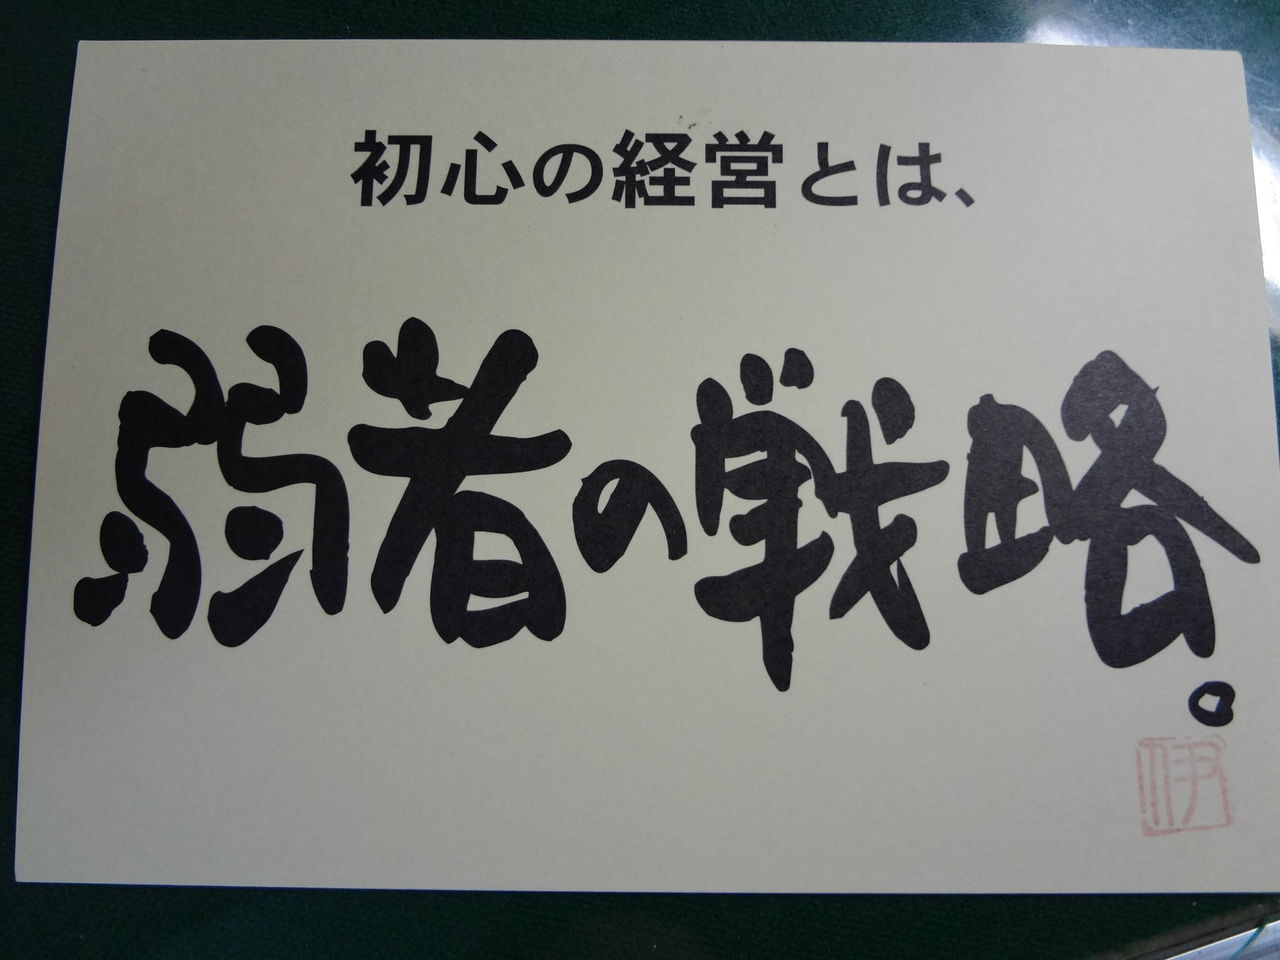 初心の経営とは、
弱者の戦略。
伊